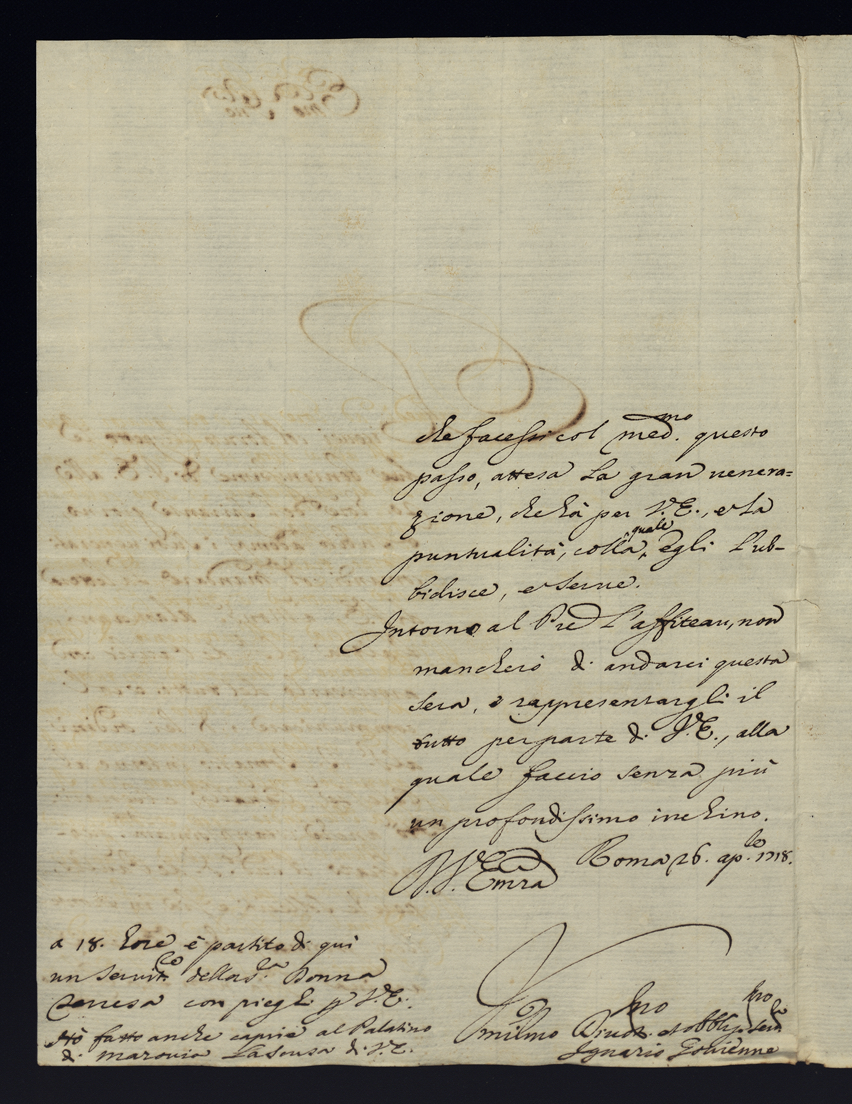 che facessi col med.mo questo
passo, attesa la gran venera=
zione, che hà per V.E., e la
puntualità, colla quale egli l'ub-
bidisce, e serve.
Intorno al Pre L'affiteau, non
mancherò di andarci questa
sera, e rappresentargli il
tutto per parte di V.E., alla
quale faccio senza più
un profondissimo inchino.
D.V.Emza Roma 26. ap.le 1718.
a 18. hore è partito di qui
un servit.e della sd.a Donna
Teresa con pieghi p V.E.
Hò fatto anche capire al Palatino
di La scusa di V.E.
Vmilmo Divot.mo et obblig.mo
Ignazio